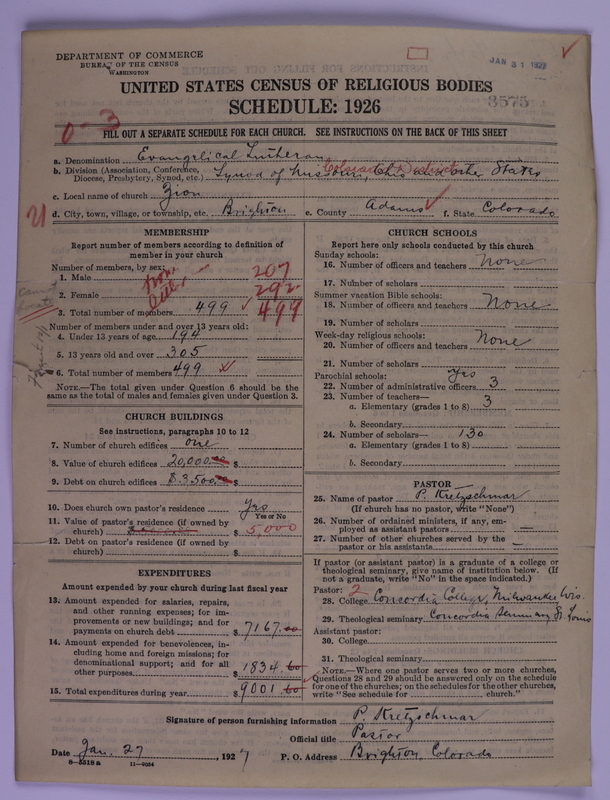 DEPARTMENT OF COMMERCE
BUREAU OF THE CENSUS
WASHINGTON
JAN 31 1927
UNITED STATES CENSUS OF RELIGIOUS BODIES
SCHEDULE: 1926
3575
0-3
FILL OUT A SEPARATE SCHEDULE FOR EACH CHURCH. SEE INSTRUCTIONS ON THE BACK OF THIS SHEET
a. Denomination Evangelical Lutheran
b. Division (Association, Conference, Diocese, Presbytery, Synod, etc.) Synod of Missouri, Ohio & other States
Colorado District
c. Local name of church Zion
d. City, town, village, or township, etc. Brighton e. County Adams f. State Colorado
MEMBERSHIP
Report number of members according to definition of
member in your church
Number of members, by sex:
1. Male 207
2. Female 292
3. Total number of members 499 499
Number of members under and over 13 years old:
4. Under 13 years of age 194
5. 13 years old and over 305
6. Total number of members 499
NOTE.—The total given under Question 6 should be
same as the total of males and females given under Question 3.
CHURCH BUILDINGS
See instructions, paragraphs 10 to 12
7. Number of church edifices one
8. Value of church edifices 20,000.00 $
9. Debt on church edifices $3,500.00 $
10. Does church own pastor's residence yes
Yes or No
11. Value of pastor's residence (if owned by
church) $ 5,000
12. Debt on pastor's residence (if owned by
church) $
EXPENDITURES
Amount expended by your church during last fiscal year
13. Amount expended for salaries, repairs,
and other running expenses; for im-
provements or new buildings; and for
payments on church debt $ 7167.00
14. Amount expended for benevolences, in-
cluding home and foreign missions; for
denominational support; and for all
other purposes $ 1834.60
15. Total expenditures during year $ 9001.60
CHURCH SCHOOLS
Report here only schools conducted by this church
Sunday schools:
16. Number of officers and teachers None
17. Number of scholars
Summer vacation Bible schools:
18. Number of officers and teachers None
19. Number of scholars
Week-day religious schools:
20. Number of officers and teachers None
21. Number of scholars
Parochial schools: yes
22. Number of administrative officers 3
23. Number of teachers—
a. Elementary (grades 1 to 8) 3
b. Secondary
24. Number of scholars— 130
a. Elementary (grades 1 to 8)
b. Secondary
PASTOR
25. Name of pastor P. Kretzschmar
(If church has no pastor, write "None")
26. Number of ordained ministers, if any, em-
ployed as assistant pastors —
27. Number of other churches served by the
pastor or his assistants —
If pastor (or assistant pastor) is a graduate of a college or
theological seminary, give name of institution below. (If
not a graduate, write "No" in the space indicated.)
Pastor: 2
28. College Concordia College, Milwaukee Wis.
29. Theological seminary Concordia Seminary St Louis
Assistant pastor:
30. College
31. Theological seminary
NOTE.—Where one pastor serves two or more churches,
Questions 28 and 29 should be answered only on the schedule
for one of the churches; on the schedules for the other churches,
write "See schedule for church."
Signature of person furnishing information P. Kretzschmar
Official title Pastor
Date Jan. 27, 1927 P. O. Address Brighton, Colorado
8—5518 a 11—9034